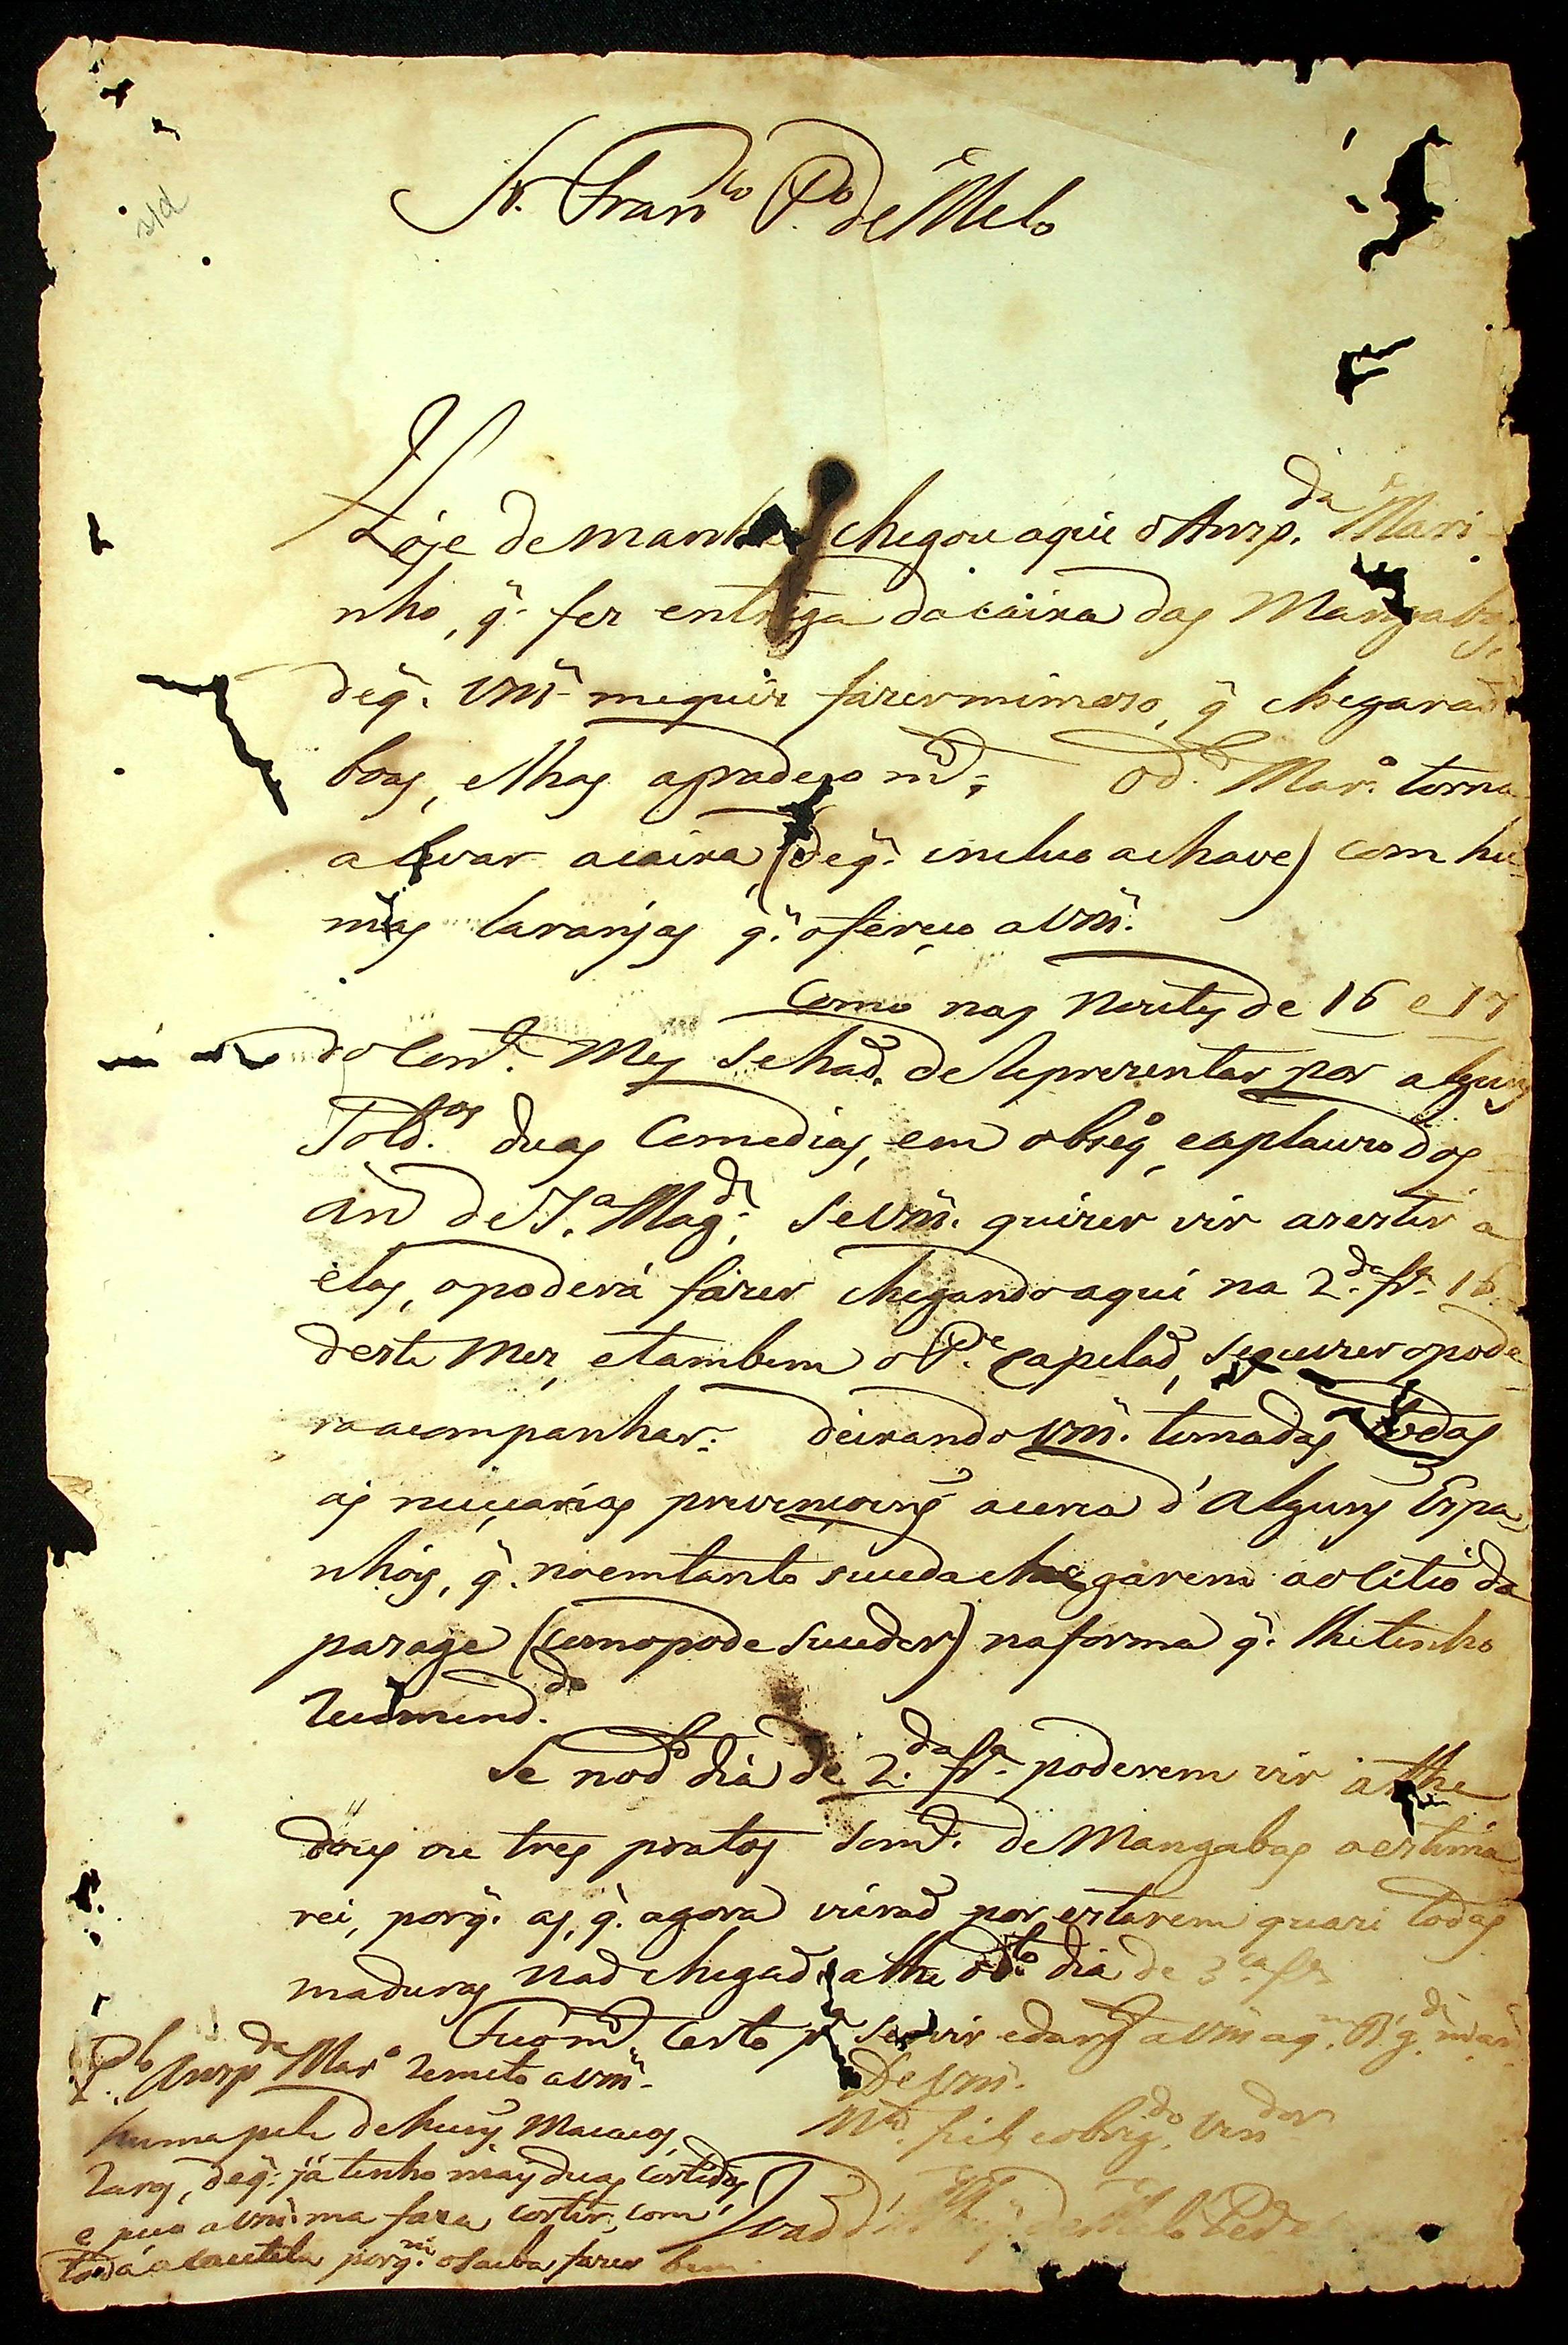 s/d
Sr. Franco Po. de Melo
Hoje de manhã chegou aqui o Anspda. Mari-
nho, q̃. fez entrega da caixa das Mangabas,
de q̃. Vm̃ me quis fazer mimozo, q̃ chegaraõ
boas, e lhas agradeço mto; o do. Maro. torna
a levar a caixa (de q̃. incluo a chave) com hu-
mas laranjas q̃. ofereço a Vm̃.
Como nas Noites de 16 e 17
do Corre. Mes se haõ de reprezentar por alguns
Soldos. duas Comedias, em obseqo, e aplauzo dos
an̄ de Sa. Magde. Se Vm̃. quizer vir asestir a
elas, o poderá fazer chegando aqui na 2da. fra. 16
deste Mez, e tambem o Pe. Capelaõ, se quizer o pode-
ra acompanhar: deixando Vm̃. tomadas todas
as necçarias prevençoens acerca d'Alguns Espa-
nhóis, q̃. no emtanto suceda chegarem ao Citio da
parage (como pode suceder) na forma q̃. lhe tenho
recomendo.
Se no do dia de 2da. fra. poderem vir athe
dous ou tres pratos Somte. de Mangabas o estima-
rei, porq̃. as q̃. agora vieraõ por estarem quazi todas
maduras naõ chegaõ athe o dto. dia de 3ca. fra
Fico mto. certo pa servir e dar gto a Vm̃ a qm. Ds. gde. ms. an.
De Vm̃.
Mto. fiel e obrigdo. Vendor
Joaõ d' de Melo
P. lo Anspda Maro remeto a Vm̃
huma pele de huns Macacos
raros, de q̃. já tenho mais duas cortidas
e peço a Vm̃. ma faça cortir, com
toda a cautela por qm. o saiba fazer bem